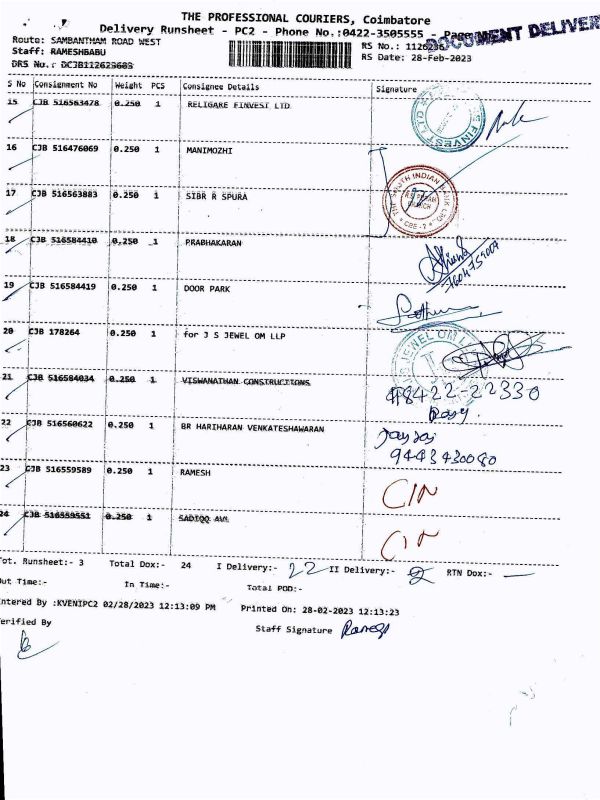 THE PROFESSIONAL COURIERS, Coimbatore
Delivery Runsheet - PC2 - Phone No.:0422-3505555 - Page
DOCUMENT DELIVER
Route: SAMBANTHAM ROAD WEST
RS No.: 1126236
Staff: RAMESHBABU
RS Date: 28-Feb-2023
DRS No.: DCJB112623683
S No Consignment No Weight PCS Consignee Details Signature
15 CJB 516563478 0.250 1 RELIGARE FINVEST LTD
16 CJB 516476069 0.250 1 MANIMOZHI
THE SOUTH INDIAN BANK LTD
17 CJB 516563883 0.250 1 SIBR R SPURA
18 CJB 516584410 0.250 1 PRABHAKARAN
19 CJB 516584419 0.250 1 DOOR PARK
20 CJB 178264 0.250 1 for J S JEWEL OM LLP
JEWEL OM
21 CJB 516584034 0.250 1 VISWANATHAN CONSTRUCTIONS
22 CJB 516560622 0.250 1 BR HARIHARAN VENKATESHAWARAN
23 CJB 516559589 0.250 1 RAMESH
24 CJB 516559551 0.250 1
Tot. Runsheet:- 3 Total Dox:- 24 I Delivery:- 22 II Delivery:- 2 RTN Dox:- —
Out Time:- In Time:- Total POD:-
Entered By :KVENIPC2 02/28/2023 12:13:09 PM Printed On: 28-02-2023 12:13:23
Verified By Staff Signature